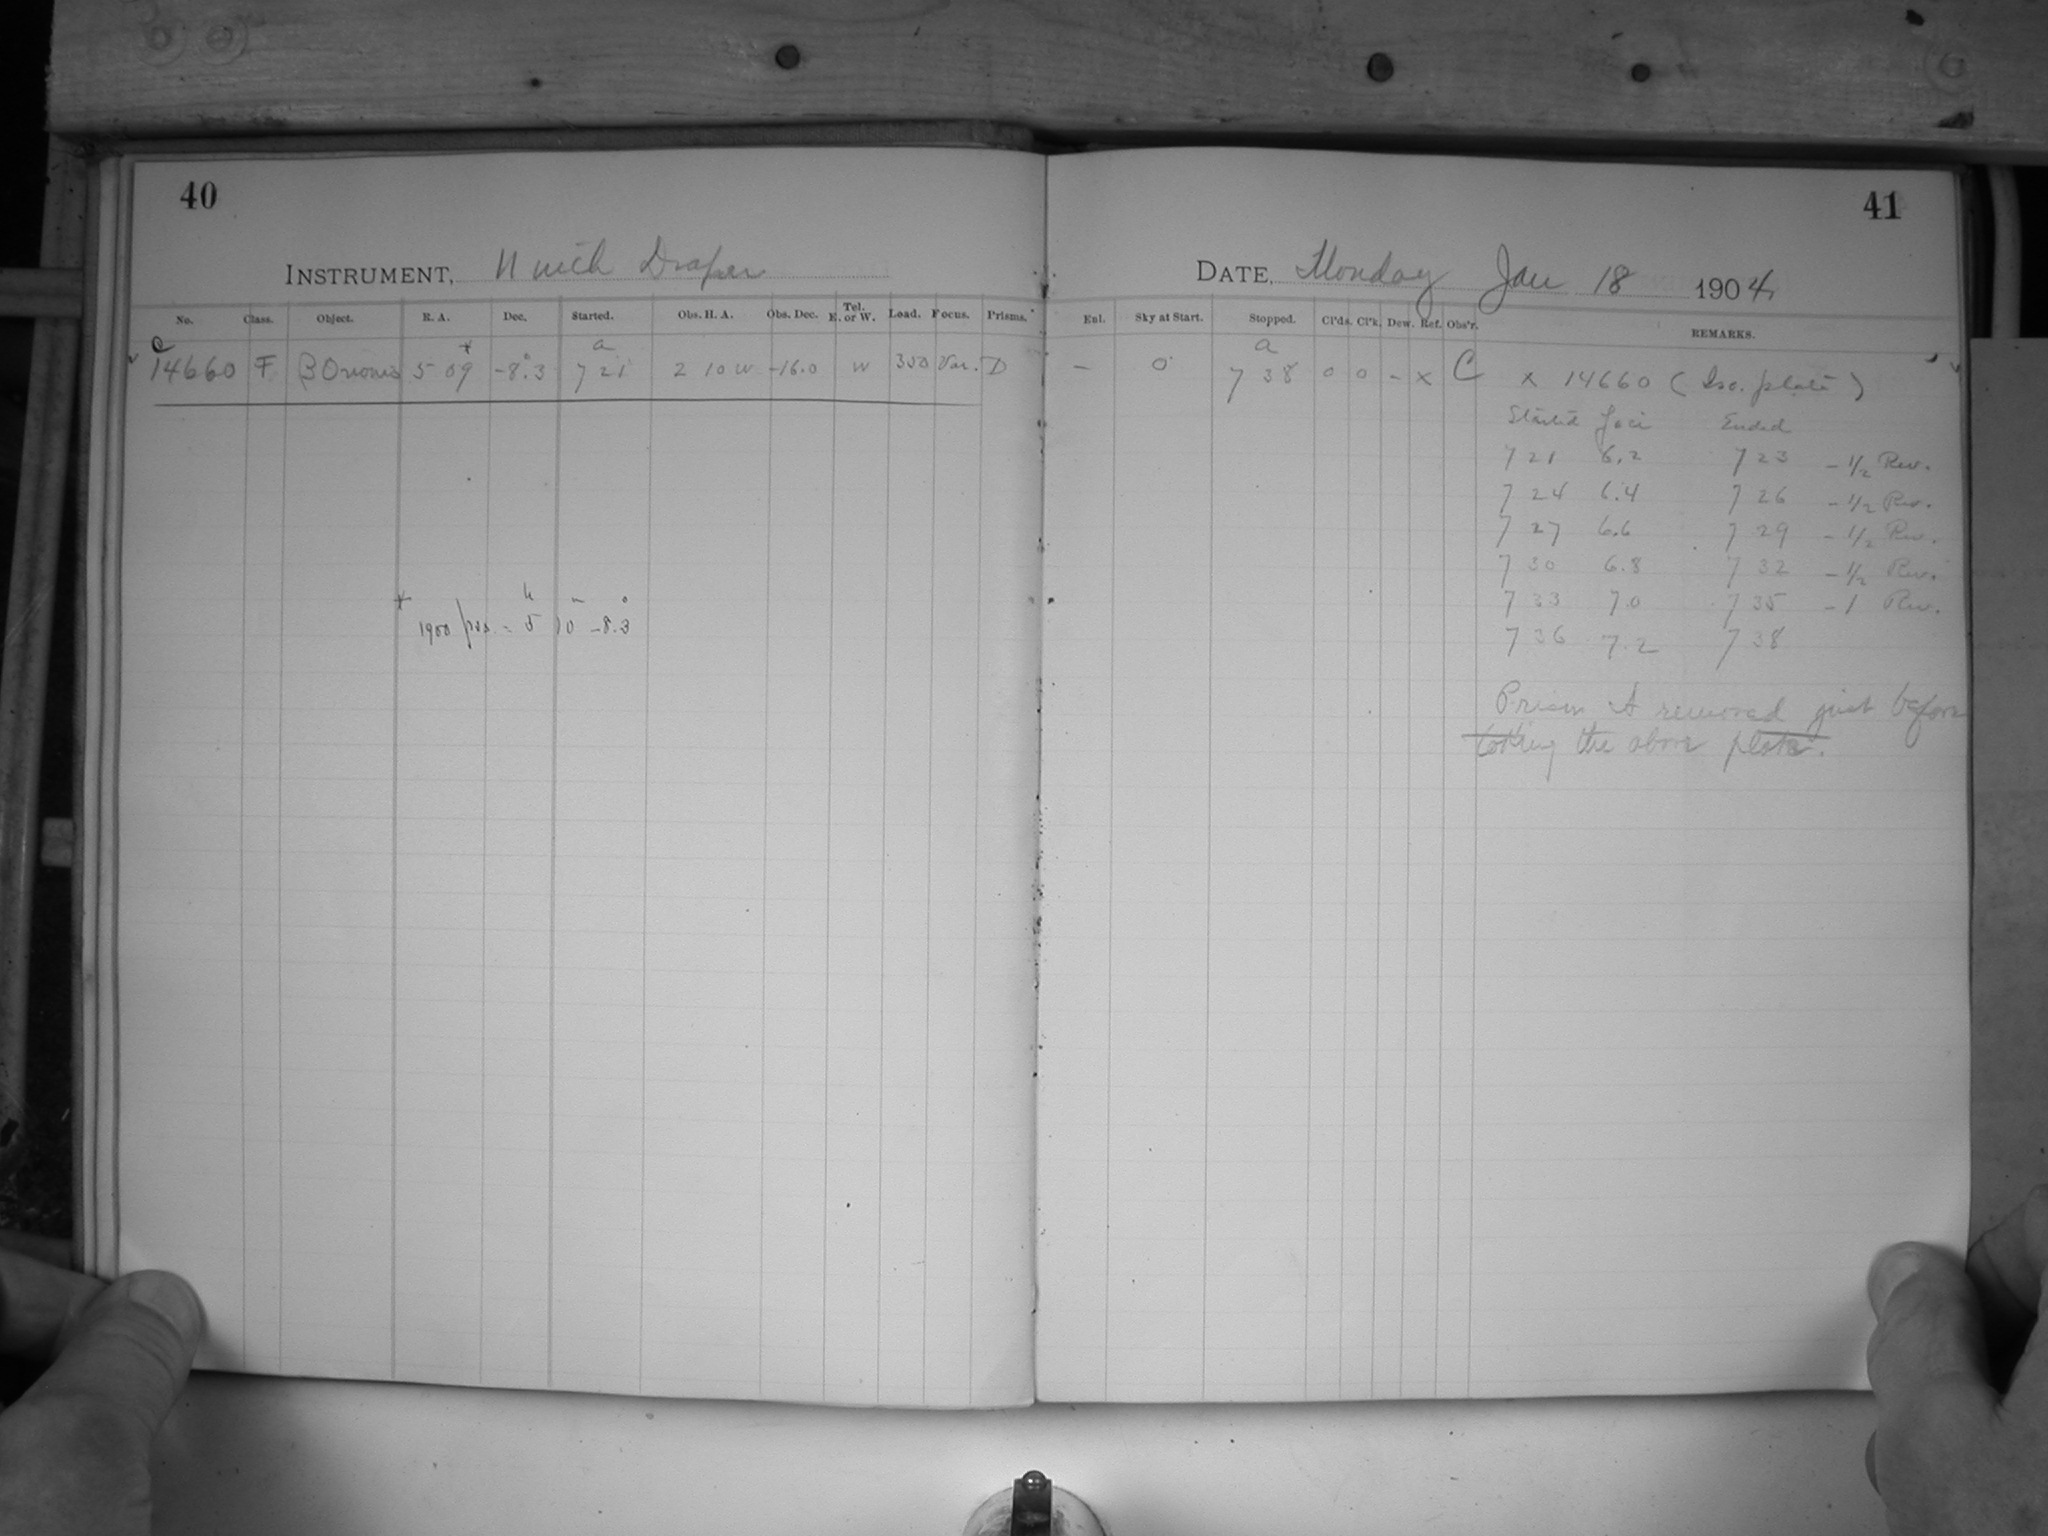 40
INSTRUMENT, 11 inch Draper
No. Class. Object. R. A. Dec. Started. Obs. H. A. Obs. Dec. Tel. E. or W. Load. Focus. Prisms.
C a
14660 F β Orionis 5 09 -8.3 7 21 2 10 W -16.0 W 350 Var. D
h m o
1900 pos. = 5 10 -8.3
41
DATE, Monday Jan 18 1904
Enl. Sky at Start. Stopped. Cl'ds. Cl'k. Dew. Ref. Obs'r. REMARKS.
a
- 0 7 38 0 0 - x C x 14660 (Iso. plate)
Started Foci Ended
7 21 6.2 7 23 - 1/2 Rev.
7 24 6.4 7 26 - 1/2 Rev.
7 27 6.6 7 29 - 1/2 Rev.
7 30 6.8 7 32 - 1/2 Rev.
7 33 7.0 7 35 - 1 Rev.
7 36 7.2 7 38
Prism A removed just before
taking the above plate.